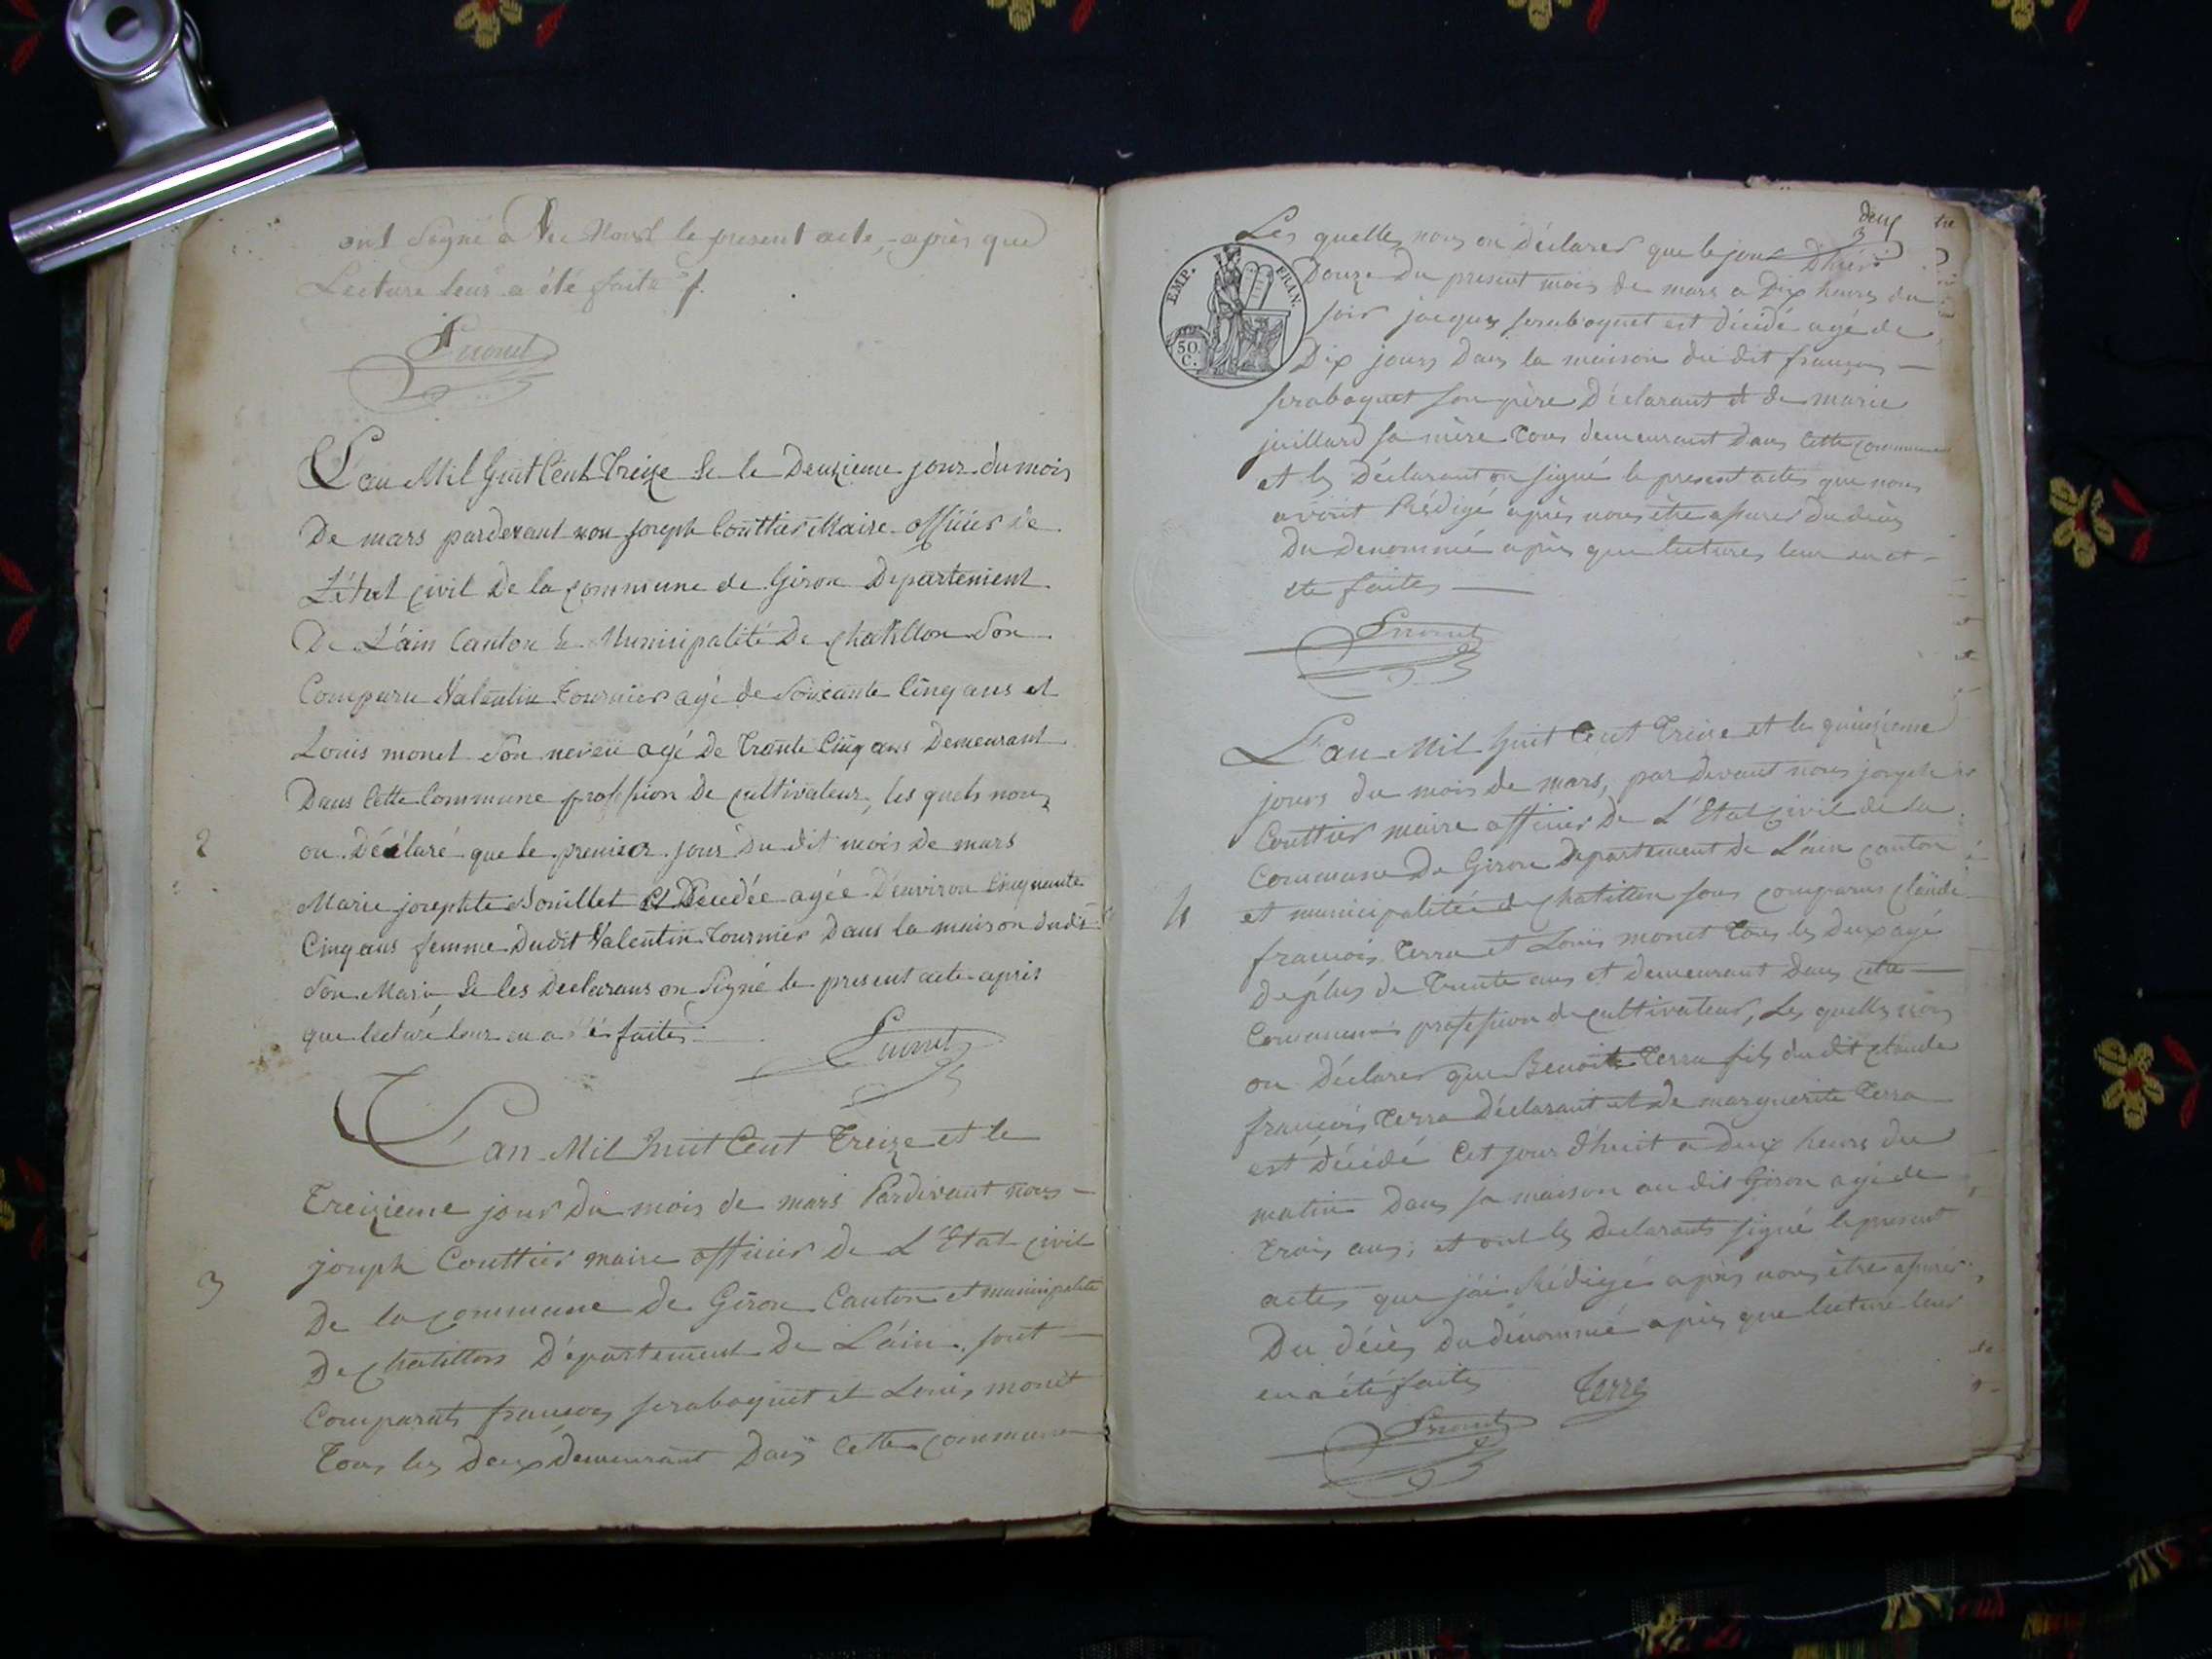 ont signé avec nous le present acte, après que
Lecture leur a été faite f.
Lmonet
2
L'an Mil huit Cent Treize & le Deuxieme jour du mois
De mars pardevant nou joseph Couttier Maire officier de
L'état civil De la commune de Giron Departement
De L'ain Canton & Municipalité De chatillon Son
Comparu Valentin Tournier agé de Soixante Cinq ans et
Louis monet Son neveu agé De Trante Cinq ans Demeurant
Dans Cette Commune profession De cultivateur, les quels nous
on Déclaré que le premier jour Du dit mois De mars
Marie josephte Bouillet est Decedée agée D'environ Cinquante
Cinq ans femme Dudit Valentin Tournier Dans la maison dudi
Son Mari & les Declarans on Signé le present acte apris
que lecture leur en a été faites
Lmonet
L'an Mil huit Cent Treize et le
Treizieme jour Du mois de mars Pardevant nous
joseph Couttier maire officier De L'Etat civil
3
De la commune De Giron Canton et municipalité
De chatillon Département De L'ain. sont
Comparuts françois seraboquet et Louis monet
Tous les Deux Demeurant Dans Cette commune
deux
3
Les quelles nous on Déclarer que le jour D'hier
EMP. FRAN.
50 C.
Douze Du present mois de mars a Dix heures du
soir jacques seraboquet est Décédé agé de
Dix jours Dans la maison du dit françois
seraboquet son père Déclarant et de marie
juillard sa mère Tous demeurant Dans Cette commune
et les Déclarant on signé le present actes que nous
avont Rédigé après nous être assurer Du décès
Du denommé après que lectures leur en at
ete faites
Lmonet
L'an Mil huit Cent Treize et le quinzieme
jours du mois de mars, par devant nous joseph
Couttier maire officier De L'Etat Civil de la
Commune De Giron Departement de L'ain canton
4
et municipalitée de chatillon sons comparus claude
françois Terra et Louis monet Tous les Deux agé
De plus de Trante ans et demeurant Dans cette
Commune profession de cultivateur, Les quelles nous
on Déclarer que Benoit Terra fils du dit claude
françois Terra Déclarant et De marguerite Terra
est Décédé Cet jour d'huit a Deux heures du
matin Dans sa maison au dit Giron agé de
Trois ans; et ont les Declarants signé le present
actes que j'ai Rédigé après nous être assurer
Du décès du dénommé après que lecture leur
en a été faites
Terra
Lmonet